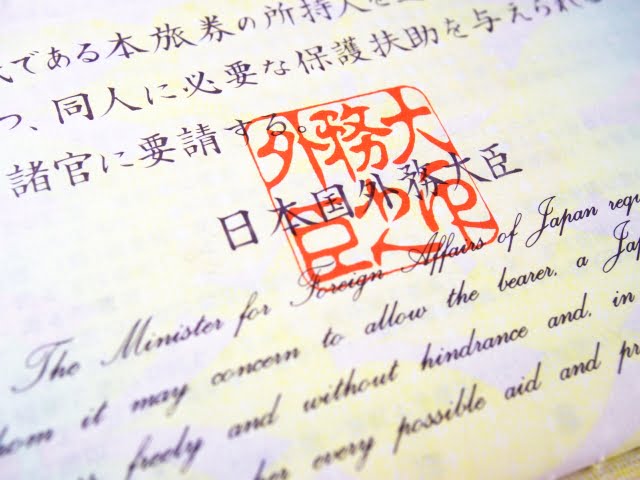 である本旅券の所持人を
つ、同人に必要な保護扶助を与えられ
諸官に要請する。
外務大
日本国外務大臣
The Minister for Foreign Affairs of Japan requ
it may concern to allow the bearer, a Jap
freely and without hindrance and, in
her every possible aid and pr